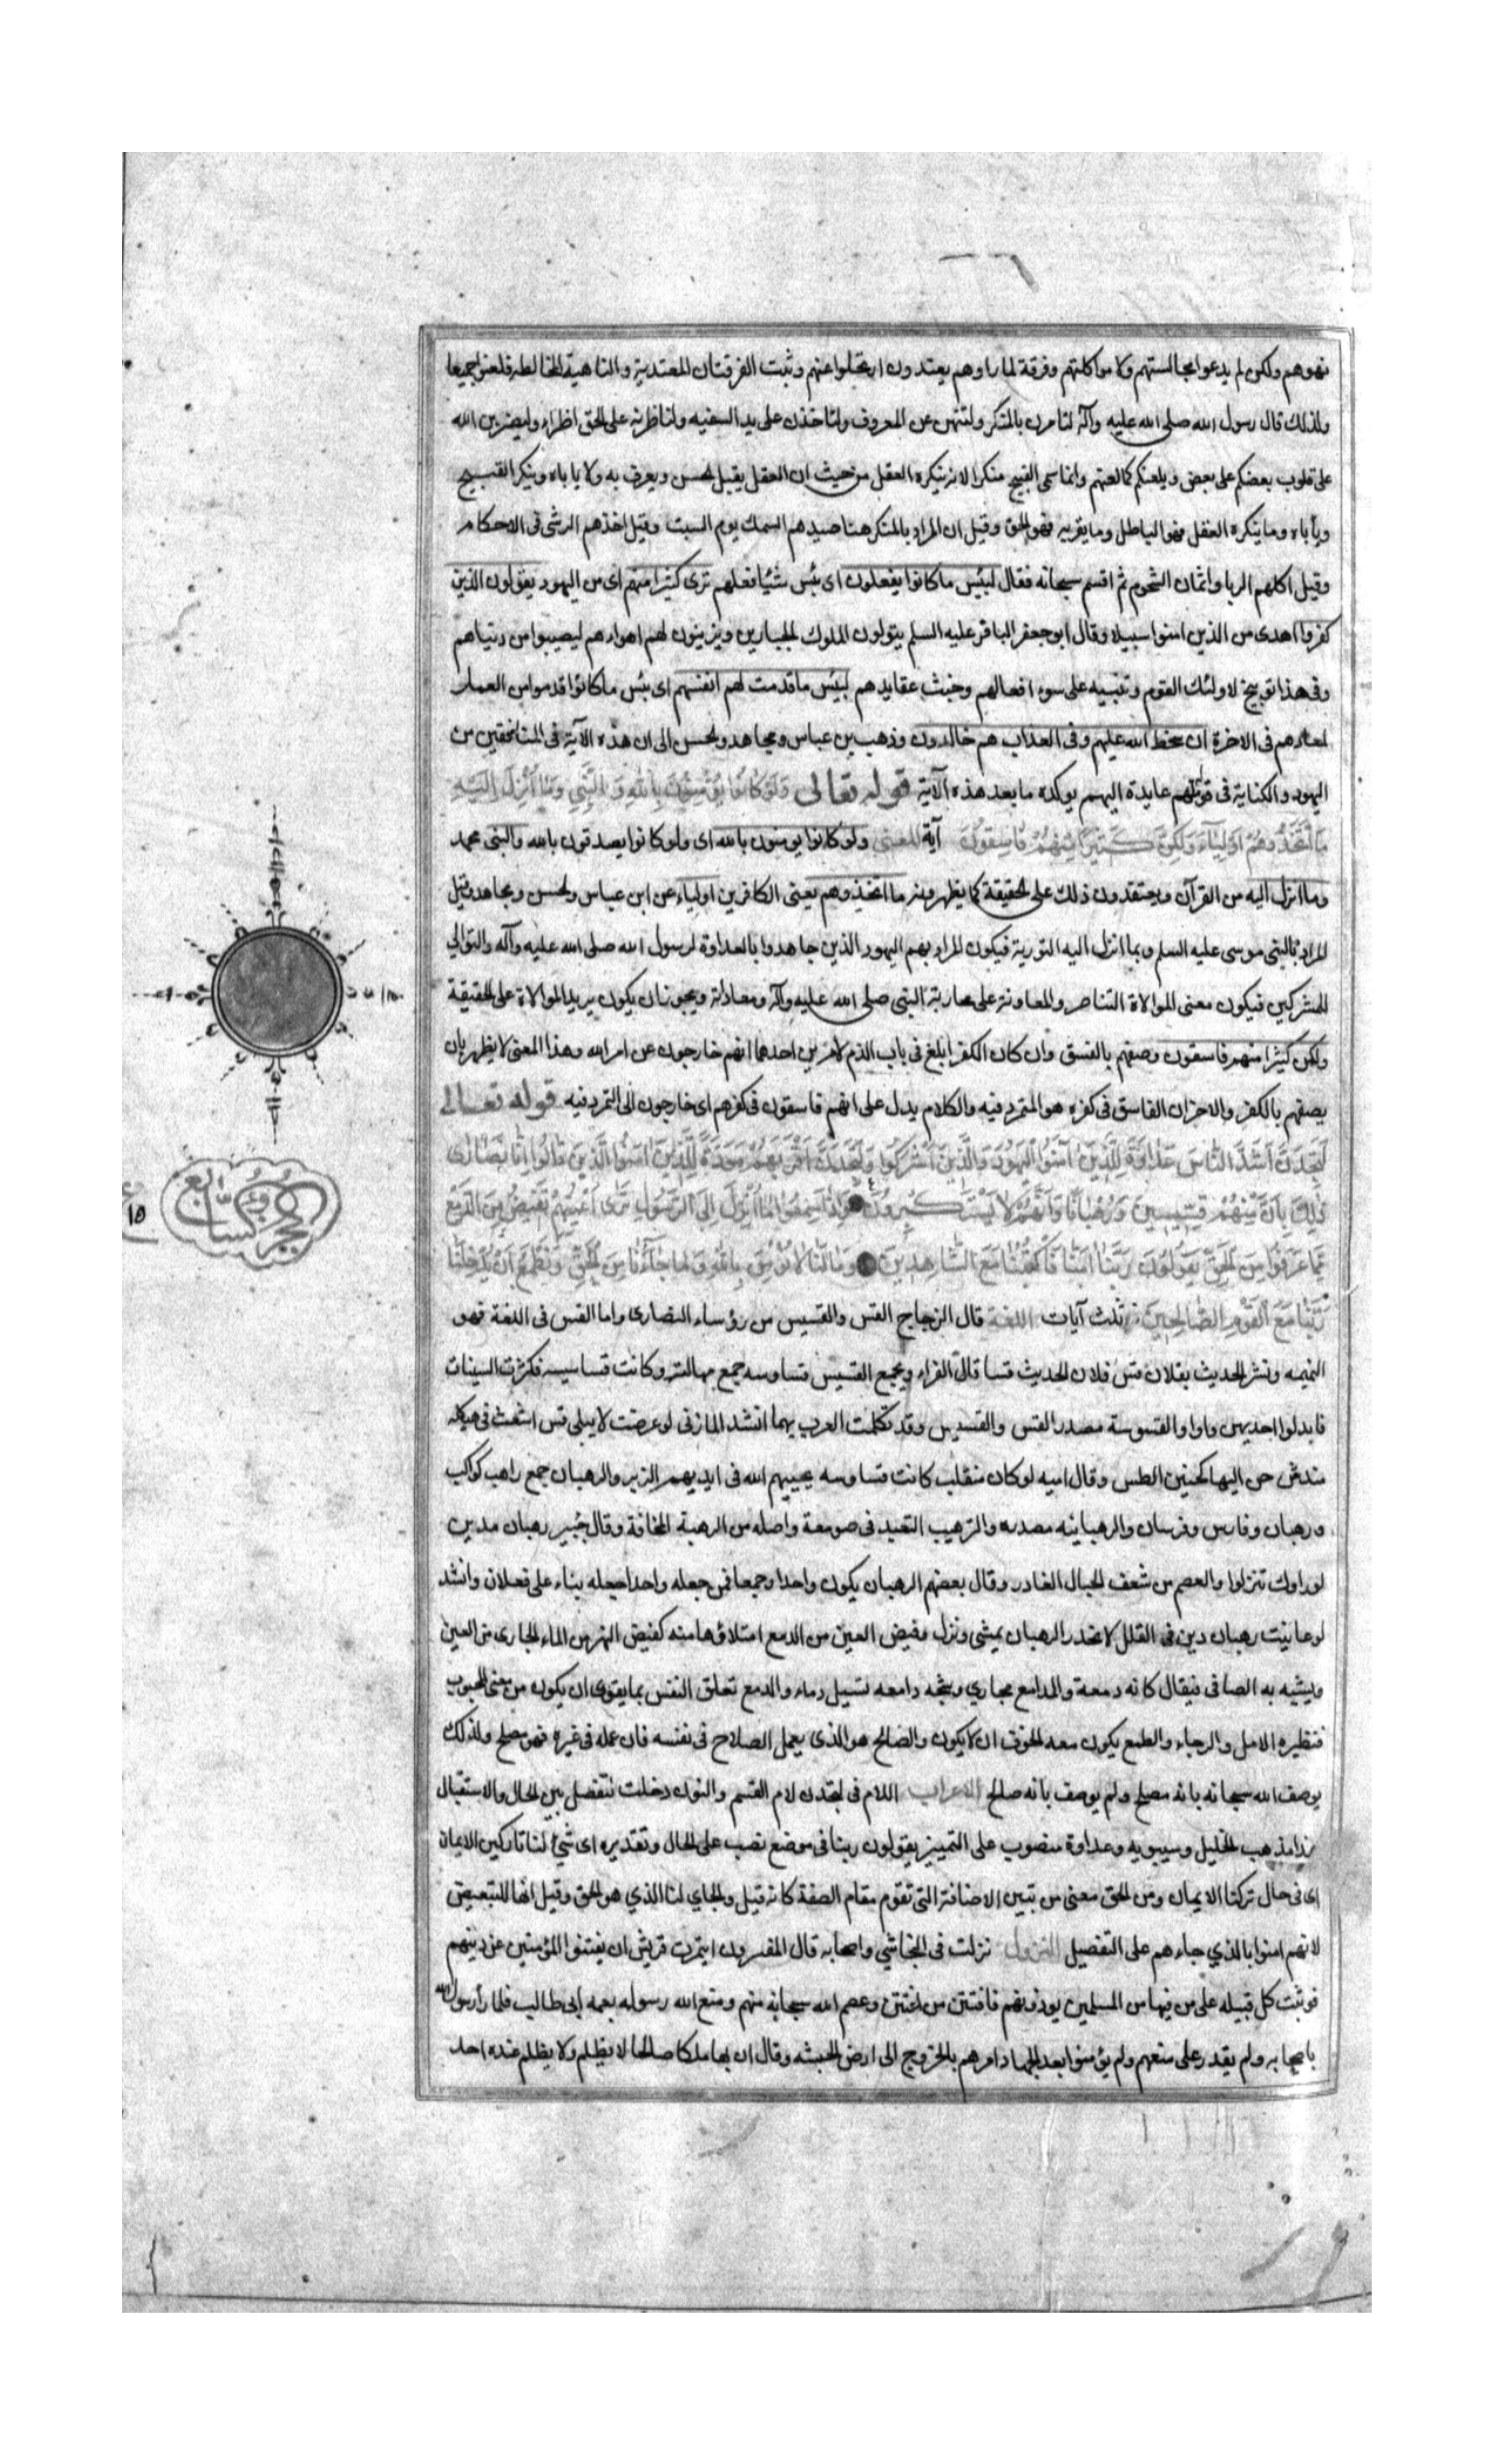 نهوهم ولكن لم يدعوا مجالستهم ولا مواكلتهم وفرقة لما راوهم يعتدون ارتحلوا عنهم وثبت الفرقتان المعتدية والناهية المخالطة فلعنوا جميعا
ولذلك قال رسول الله صلى الله عليه وآله لتامرن بالمنكر ولتنهن عن المعروف ولتاخذن على يد السفيه ولتاطرنه على الحق اطراء وليضربن الله
على قلوب بعضكم على بعض ويلعنكم كما لعنهم وانما سمى القبيح منكرا لانه ينكره العقل من حيث ان العقل يقبل الحسن ويعرف به ولا ياباه وينكر القبيح
ويأباه وما ينكره العقل فهو الباطل وما يقربه فهو الحق وقيل ان المراد بالمنكر هنا صيدهم السمك يوم السبت وقيل اخذهم الرشى فى الاحكام
وقيل اكلهم الربا واثمان الشحوم ثم اقسم سبحانه فقال لبئس ما كانوا يفعلون اى بئس شيئا فعلهم ترى كثيرا منهم اى من اليهود يتولون الذين
كفروا اهدى من الذين امنوا سبيلا وقال ابو جعفر الباقر عليه السلم يتولون الملوك الجبارين ويزينون لهم اهواءهم ليصيبوا من دنياهم
وفى هذا توبيخ لاولئك القوم وتنبيه على سوء افعالهم وخبث عقايدهم لبئس ما قدمت لهم انفسهم اى بئس ما كانوا قدموا من العمل
لمعادهم فى الاخرة ان سخط الله عليهم وفى العذاب هم خالدون وذهب بن عباس ومجاهد والحسن الى ان هذه الآية فى المنافقين من
اليهود والكناية فى قولهم عايدة اليهم يوكده ما بعد هذه الآية قوله تعالى وَلَوْ كَانُوا يُؤْمِنُونَ بِاللهِ وَالنَّبِيِّ وَمَا أُنْزِلَ إِلَيْهِ
مَا اتَّخَذُوهُمْ أَوْلِيَاءَ وَلَكِنَّ كَثِيرًا مِنْهُمْ فَاسِقُونَ آية المعنى ولو كانوا يومنون بالله اى ولو كانوا يصدقون بالله والنبى محمد
وما انزل اليه من القرآن ويعتقدون ذلك على الحقيقة كما يظهرونه ما اتخذوهم يعنى الكافرين اولياء عن ابن عباس والحسن ومجاهد وقيل
المراد بالنبى موسى عليه السلم وبما انزل اليه التورية فيكون المراد بهم اليهود الذين جاهدوا بالعداوة لرسول الله صلى الله عليه وآله والتوالي
للمشركين فيكون معنى الموالاة التناصر والمعاونة على محاربة النبى صلى الله عليه وآله ومعاداته ويجوز ان يكون يريد الموالاة على الحقيقة
ولكن كثيرا منهم فاسقون وصفهم بالفسق وان كان الكفر ابلغ فى باب الذم لامرين احدهما انهم خارجون عن امر الله وهذا المعنى لا يظهر بان
يصفهم بالكفر والاخر ان الفاسق فى كفره هو المتمرد فيه والكلام يدل على انهم فاسقون فى كفرهم اى خارجون الى التمرد فيه قوله تعالى
لَتَجِدَنَّ أَشَدَّ النَّاسِ عَدَاوَةً لِلَّذِينَ آمَنُوا الْيَهُودَ وَالَّذِينَ أَشْرَكُوا وَلَتَجِدَنَّ أَقْرَبَهُمْ مَوَدَّةً لِلَّذِينَ آمَنُوا الَّذِينَ قَالُوا إِنَّا نَصَارَى
ذَلِكَ بِأَنَّ مِنْهُمْ قِسِّيسِينَ وَرُهْبَانًا وَأَنَّهُمْ لَا يَسْتَكْبِرُونَ وَإِذَا سَمِعُوا مَا أُنْزِلَ إِلَى الرَّسُولِ تَرَى أَعْيُنَهُمْ تَفِيضُ مِنَ الدَّمْعِ
مِمَّا عَرَفُوا مِنَ الْحَقِّ يَقُولُونَ رَبَّنَا آمَنَّا فَاكْتُبْنَا مَعَ الشَّاهِدِينَ وَمَا لَنَا لَا نُؤْمِنُ بِاللهِ وَمَا جَاءَنَا مِنَ الْحَقِّ وَنَطْمَعُ أَنْ يُدْخِلَنَا
رَبُّنَا مَعَ الْقَوْمِ الصَّالِحِينَ ثلث آيات اللغة قال الزجاج القس والقسيس من رؤساء النصارى واما القس فى اللغة فهو
النميمه ونشر الحديث يقلان قس فلان الحديث قسا قال الفراء ويجمع القسيس قساوسه جمع مهالته وكانت قساسيسه فكثرت السينات
فابدلوا احديهن واوا والقسوسة مصدر القس والقسيس وقد تكلمت العرب بهما انشد المازنى لو عرضت لايبلى قس اشعث فى هيكله
مندش حن اليها كحنين الطس وقال اميه لو كان منقلب كانت قساوسه يحييهم الله فى ايديهم الزبر والرهبان جمع راهب كراكب
ورهبان وفارس وفرسان والرهبانيه مصدره والترهيب التعبد فى صومعة واصله من الرهبة المخافة وقال جبير رهبان مدين
لو راوك تنزلوا والعصم من شعف الجبال الغادر وقال بعضهم الرهبان يكون واحدا وجمعا فمن جعله واحدا جعله بناء على فعلان وانشد
لو عاينت رهبان دير فى القلل لانحدر الرهبان يمشى ونزل وفيض العين من الدمع امتلاؤها منه كفيض النهر من الماء الجارى من العين
ويشبه به الصافى فيقال كانه دمعة والمدامع مجاري وشجه دامعه تسيل دماء والدمع تعلق النفس بما يقوى ان يكون من معنى المحبوب
فنظيره الامل والرجاء والطمع يكون معه الخوف ان لا يكون والصالح هو الذى يعمل الصلاح فى نفسه فان عمله فى غيره فهو مصلح ولذلك
يوصف الله سبحانه بانه مصلح ولم يوصف بانه صالح الاعراب اللام فى لتجدن لام القسم والنون دخلت لتفصل بين الحال والاستقبال
هذا مذهب الخليل وسيبويه وعداوة منصوب على التمييز يقولون ربنا فى موضع نصب على الحال وتقديره اى شئ لنا تاركين الايمان
اى فى حال تركنا الايمان ومن الحق معنى من تبيين الاضافة التى تقوم مقام الصفة كانه قيل والجاي لنا الذي هو الحق وقيل انها للتبعيض
لانهم امنوا بالذي جاءهم على التفصيل النزول نزلت فى النجاشي واصحابه قال المفسرون ايتمرت قريش ان يفتنوا المؤمنين عن دينهم
فوثبت كل قبيله على من فيها من المسلمين يوذونهم فافتتن من افتتن وعصم الله سبحانه منهم ومنع الله رسوله بعمه ابى طالب فلما رأ رسول الله
باصحابه ولم يقدر على منعهم ولم يؤمنوا بعد بالجهاد امرهم بالخروج الى ارض الحبشه وقال ان بها ملكا صالحا لا يظلم ولا يظلم عنده احد
الجزؤ السابع
١٥